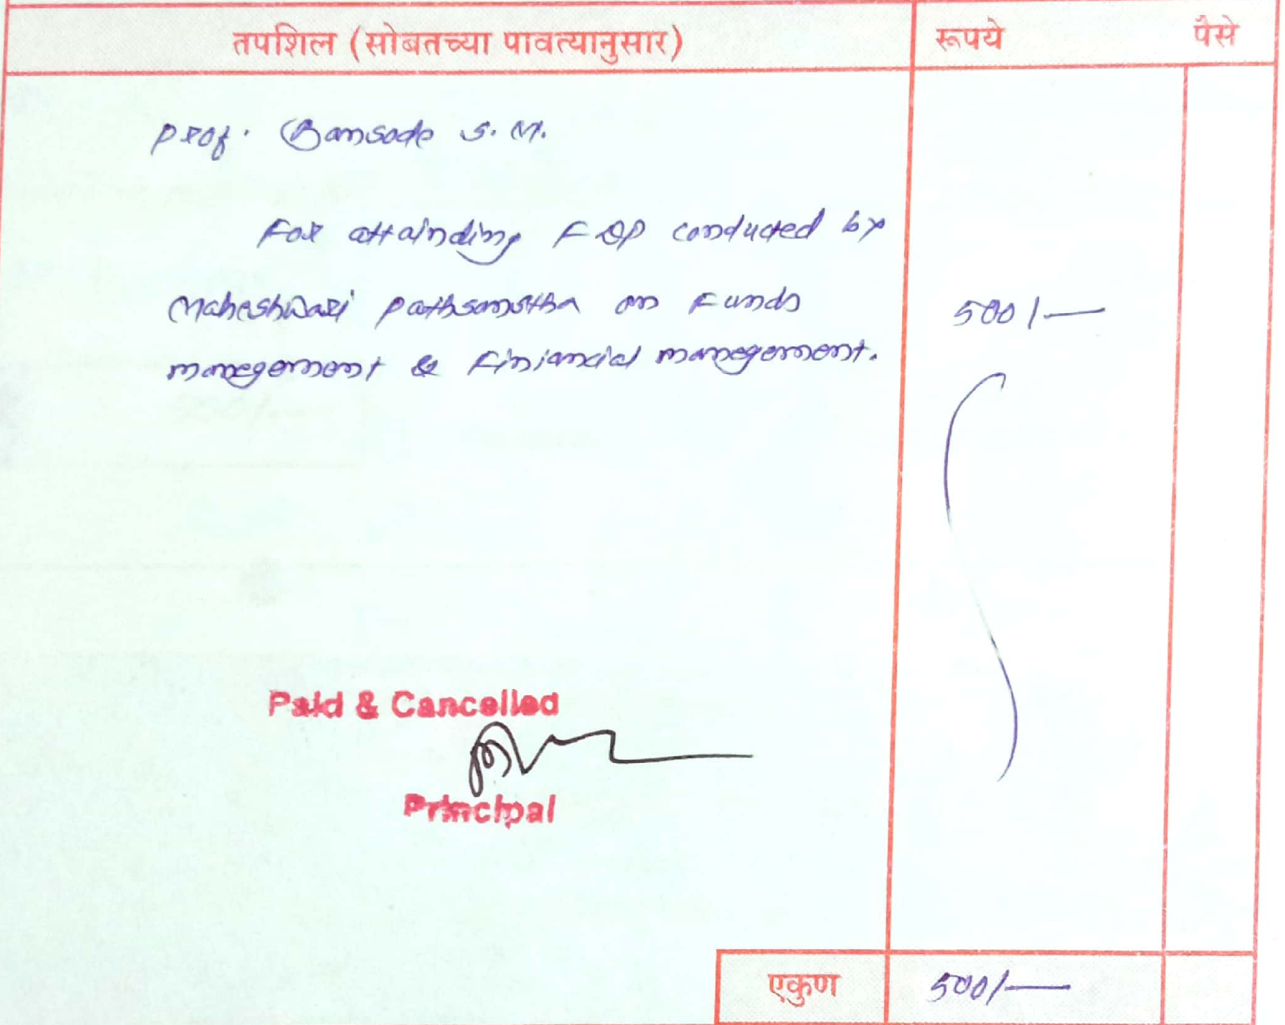 तपशिल (सोबतच्या पावत्यानुसार) रूपये पैसे
Prof. Bansode S. M.
For attainding FDP conducted by
Maheshwari pathsanstha on Funds 500/—
manegement & Finiancial manegement.
Paid & Cancelled
Principal
एकुण 500/—